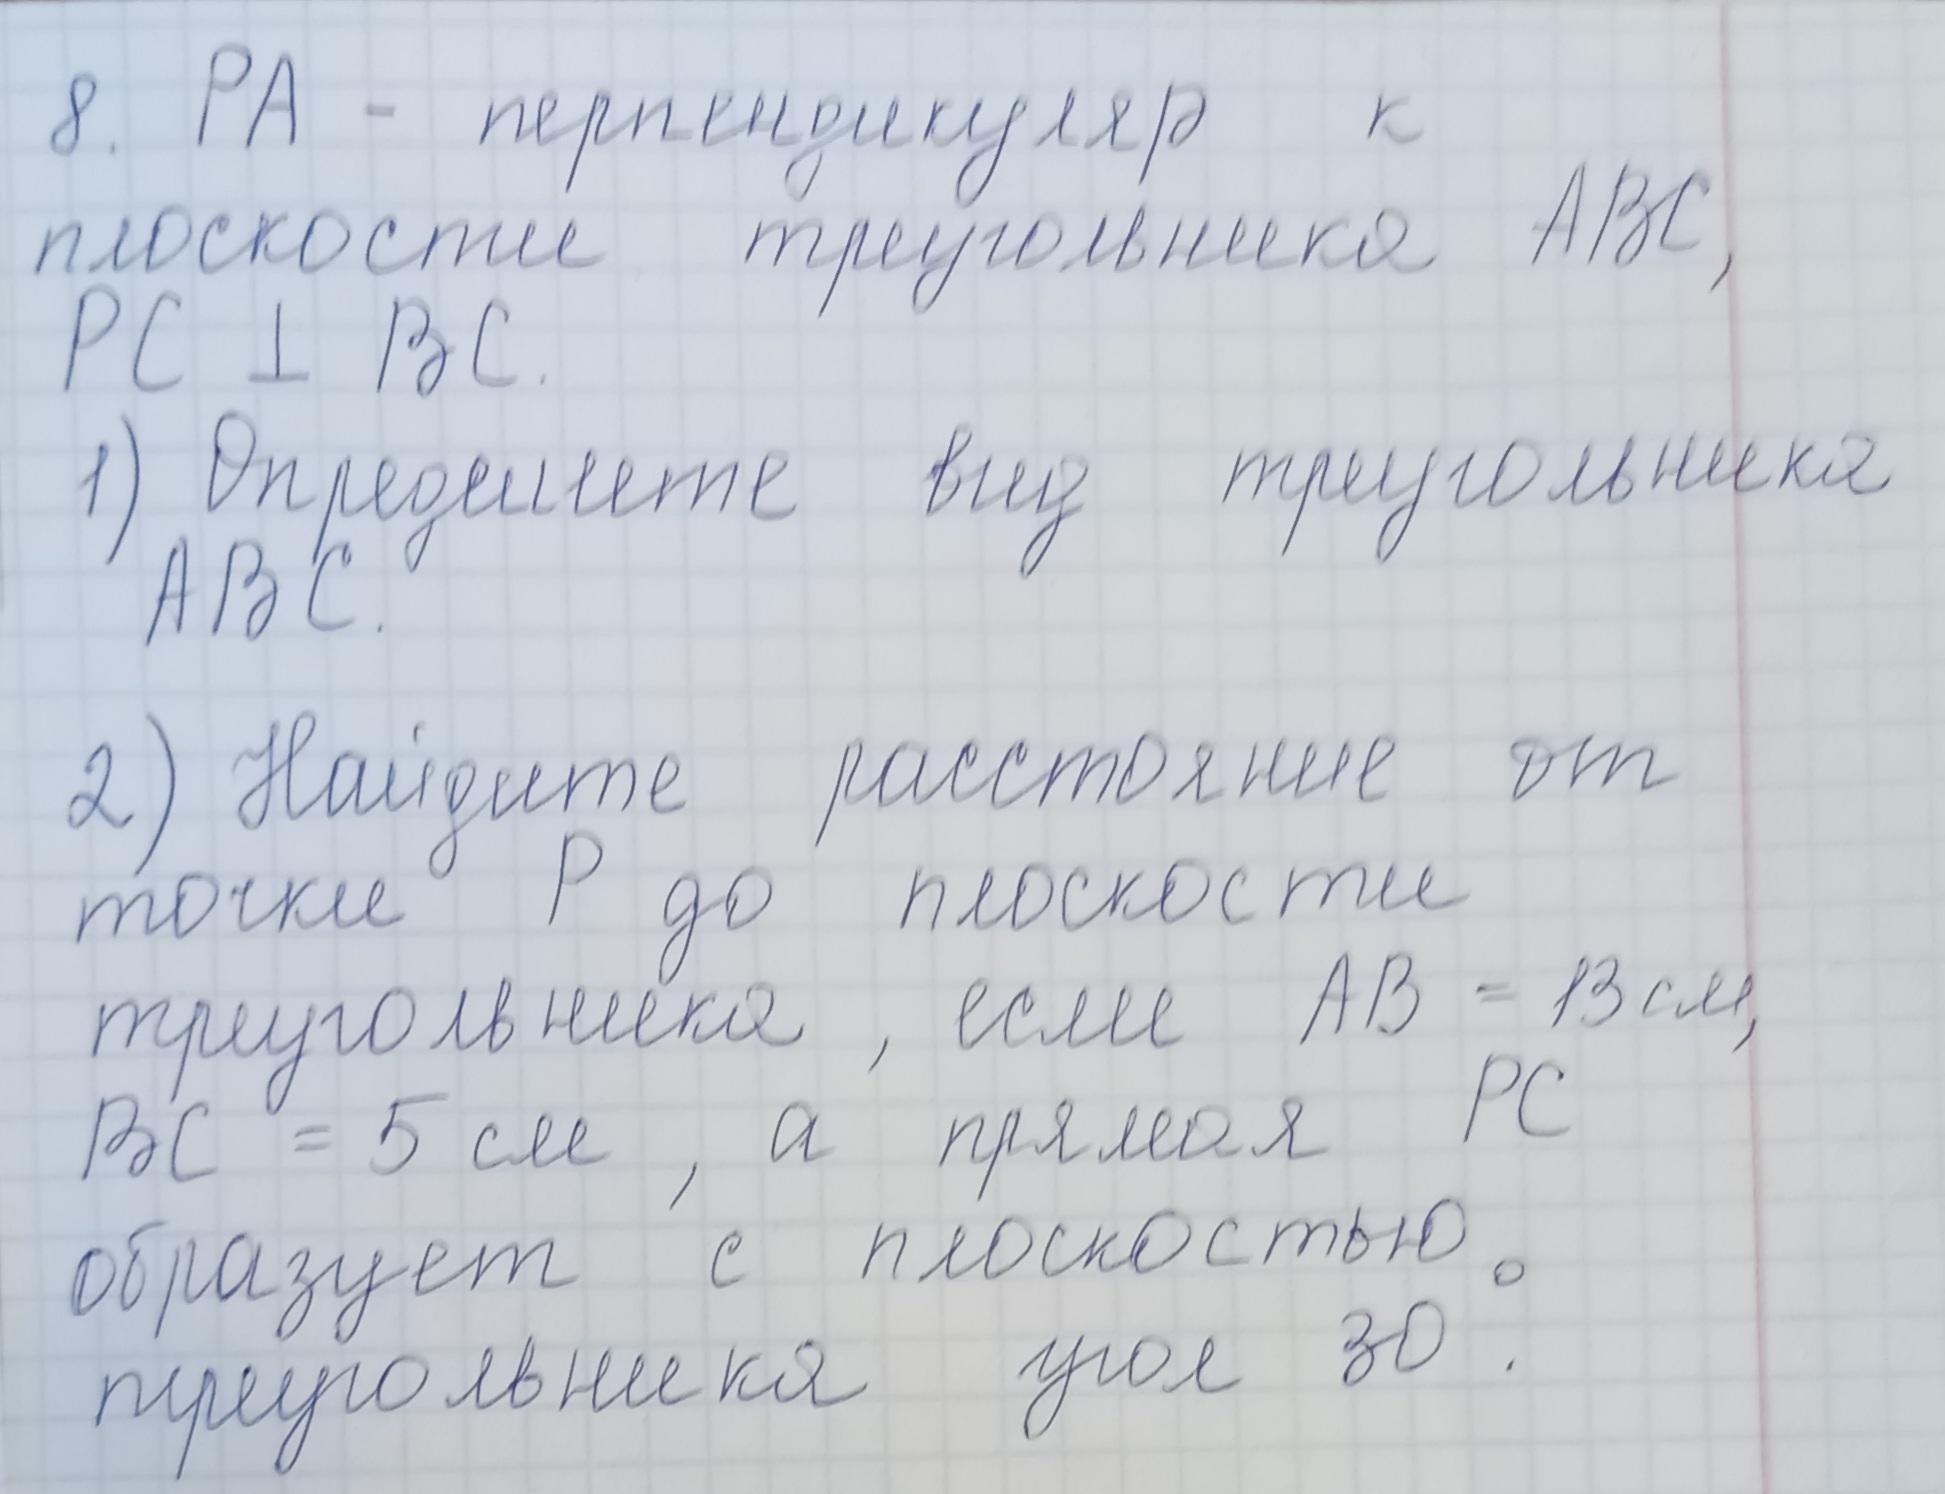 8. PA - перпендикуляр к
плоскости треугольника ABC,
PC ⊥ BC.
1) Определите вид треугольника
ABC.
2) Найдите расстояние от
точки P до плоскости
треугольника, если AB = 13 см,
BC = 5 см, а прямая PC
образует с плоскостью
треугольника угол 30°.